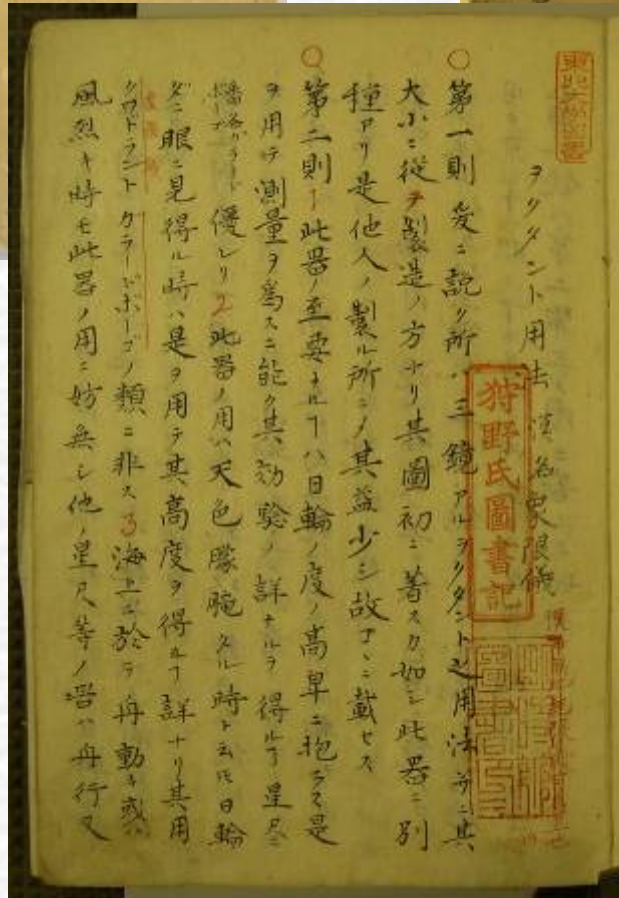 ヲクタント用法 漢名象限儀
○第一則 爰ニ説ク所ハ三鏡アルヲクタント之用法并ニ其
大小ニ従テ製造ノ方ナリ其圖初ニ著スカ如シ此器ニ別
種アリ是他人ノ製ル所ニノ其益少シ故コヽニ載セス
○第二則 1 此器ノ至要ナルヿハ日輪ノ度ノ高卑ニ抱ラス是
ヲ用テ測量ヲ爲スニ能ク其効驗ノ詳ナルヲ得ルヿ星尺ニ
優レリ 2 此器ノ用ハ天色朦朧タル時ト云ヒ日輪
眼ニ見得ル時ハ是ヲ用テ其高度ヲ得ルヿ詳ナリ其用
クワトラント ノ類ニ非ス 3 海上ニ於テ舟動キ或ハ
風烈キ時モ此器ノ用ニ妨無シ他ノ星尺等ノ器ハ舟行又
狩野氏圖書記